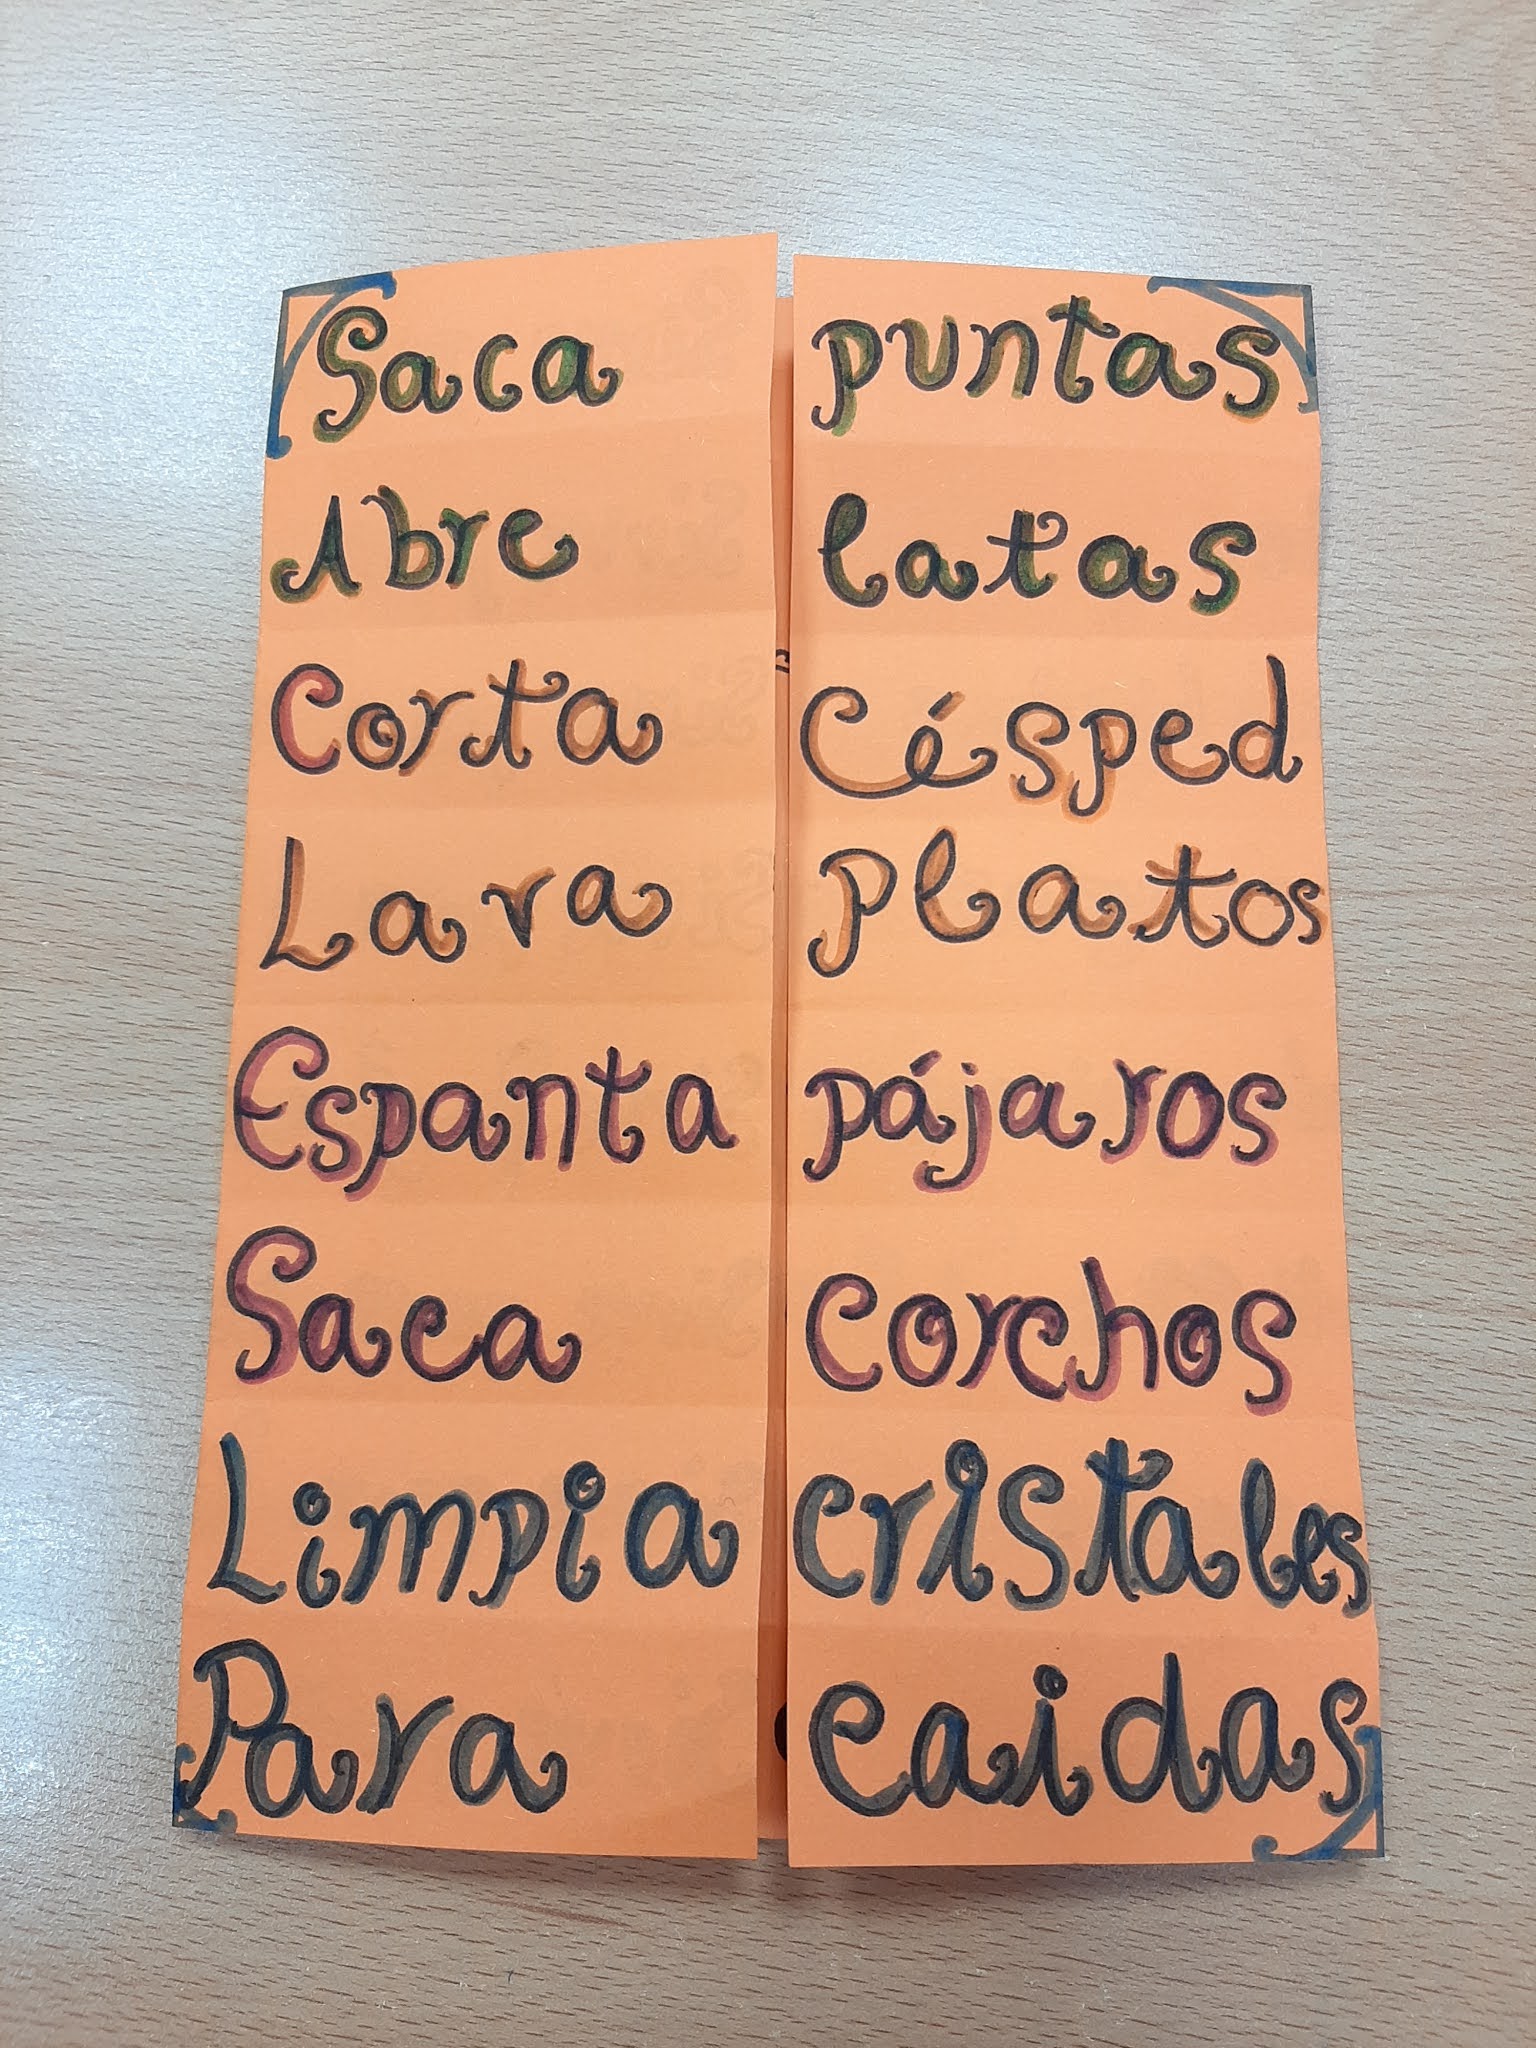 Saca puntas
Abre latas
Corta Césped
Lava Platos
Espanta pájaros
Saca Corchos
Limpia cristales
Para Caidas